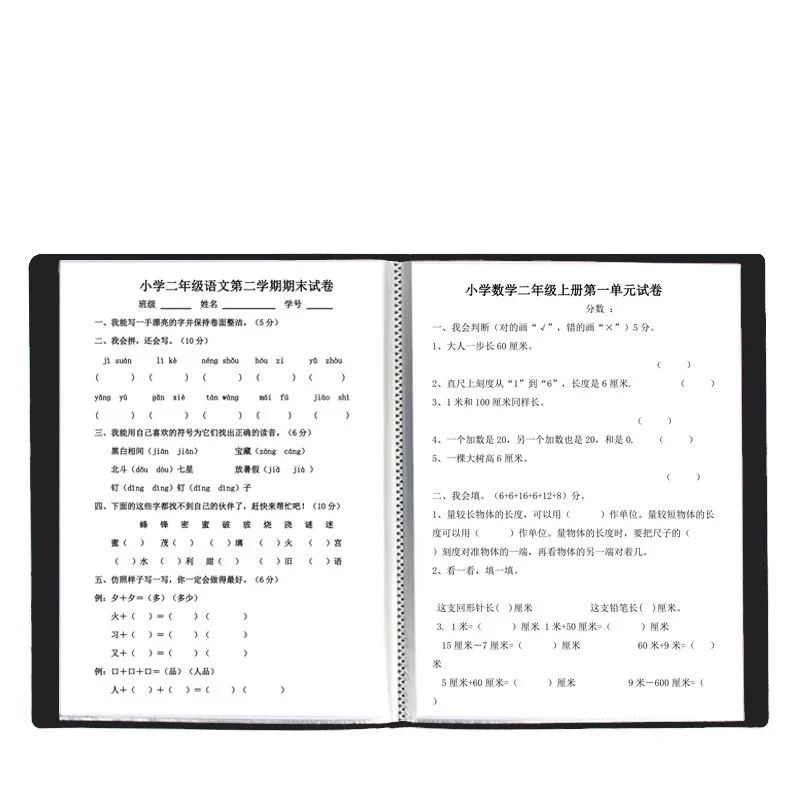 小学二年级语文第二学期期末试卷
班级 ______ 姓名 __________ 学号 _____
一、我能写一手漂亮的字并保持卷面整洁。(5 分)
二、我会拼，还会写。(10 分)
jì suàn lì kè néng shǒu hóu zi yǔ zhòu
( ) ( ) ( ) ( ) ( )
yǎng yù gān xiè tàn wàng mái fú jiào shì
( ) ( ) ( ) ( ) ( )
三、我能用自己喜欢的符号为它们找出正确的读音。(6 分)
黑白相间（jiān jiàn） 宝藏（zàng cáng）
北斗（dǒu dòu）七星 放暑假（jiǎ jià ）
钉（dīng dìng）钉（dīng dìng）子
四、下面的这些字都找不到自己的伙伴了，赶快来帮忙吧！(10 分)
蜂 锋 密 蜜 破 玻 烧 浇 谜 迷
蜜（ ） 茂（ ） （ ）璃 （ ）火 （ ）宫
（ ）水 （ ）利 甜（ ） （ ）旧 （ ）语
五、仿照样子写一写，你一定会做得最好。(6 分)
例：夕＋夕＝（多）（多少）
火＋（ ）＝（ ）（ ）
习＋（ ）＝（ ）（ ）
又＋（ ）＝（ ）（ ）
例：口＋口＋口＝（品）（人品）
人＋（ ）＋（ ）＝（ ）（ ）
小学数学二年级上册第一单元试卷
分数 ：
一、我会判断（对的画“√”，错的画“×”）5 分。
1、大人一步长 60 厘米。
（ ）
2、直尺上刻度从“1”到“6”，长度是 6 厘米. （ ）
3、1 米和 100 厘米同样长。
（ ）
4、一个加数是 20，另一个加数也是 20，和是 0. （ ）
5、一棵大树高 6 厘米。
（ ）
二、我会填。（6+6+16+6+12+8）分。
1、量较长物体的长度，可以用（ ）作单位。量较短物体的长
度可以用（ ）作单位。量物体的长度时，要把尺子的（
）刻度对准物体的一端，再看物体的另一端对着几。
2、看一看，填一填。
这支回形针长( )厘米 这支铅笔长( )厘米。
3. 1 米=（ ）厘米 1 米+50 厘米=（ ）厘米
15 厘米－7 厘米=（ ）厘米 60 米+9 米=（ ）
米
5 厘米+60 厘米=（ ）厘米 9 米－600 厘米=（
）